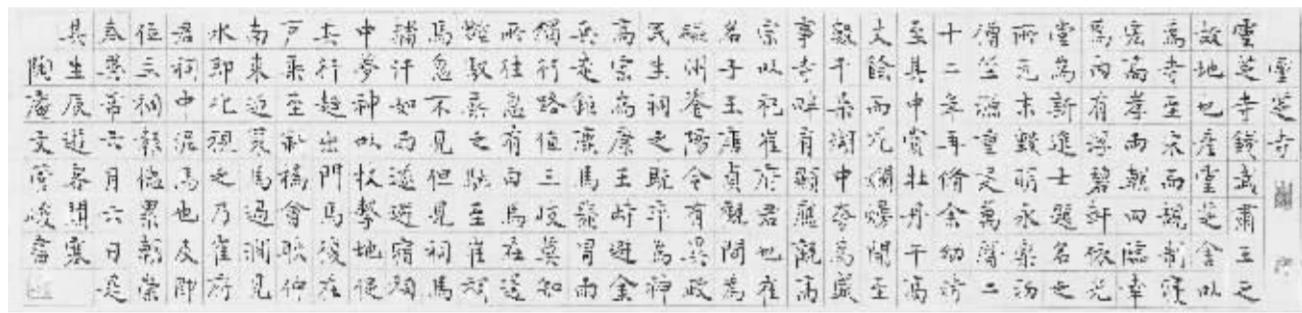 靈芝寺
靈芝寺錢武肅王之
故地也產靈芝舍以
為寺至宋而規制浸
宏高孝兩朝四臨幸
焉內有浮碧軒依光
堂為新進士題名之
所元末毀明永樂初
僧竺源重建萬曆二
十二年再脩余幼時
至其中賞牡丹干高
丈餘而花爛熳開至
數千朵湖中夸為盛
事寺畔有顯應觀高
宗以祀崔府君也崔
名子玉唐貞觀間為
磁州滏陽令有異政
民生祠之既卒為神
高宗為康王時避金
兵走鉅鹿馬斃冒雨
獨行路值三岐莫知
所往忽有白馬在道
鞚馭乘之馳至崔祠
馬忽不見但見祠馬
赭汗如雨遂避宿祠
中夢神以杖擊地促
其行趨出門馬復在
戶乘至斜橋會耿仲
南來迎策馬過澗見
水即化視之乃崔府
君祠中泥馬也及即
位立祠報德累朝崇
奉異常六月六日是
其生辰遊客闐塞
陶庵文管峻書